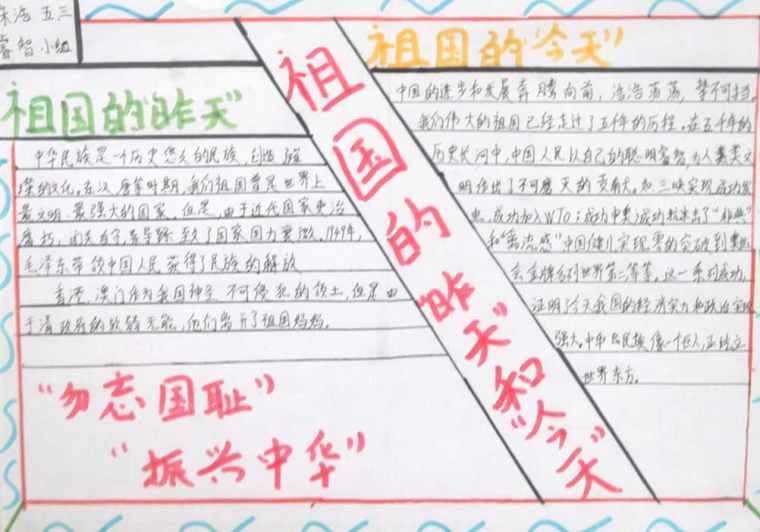 朱海 五三
睿智小组
祖国的“昨天”
中华民族是一个历史悠久的民族，创造 璀
璨的文化。在汉、唐等时期，我们祖国曾是世界上
最文明、最强大的国家。但是，由于近代国家吏治
腐朽，闭关自守，导致了国家国力衰微。1949年，
毛泽东带领中国人民获得了民族的解放
香港、澳门作为我国神圣不可侵犯的领土，但是由
于清政府的软弱无能，他们离开了祖国妈妈。
“勿忘国耻”
“振兴中华”
祖国的“昨天”和“今天”
祖国的“今天”
中国的进步和发展奔腾向前，浩浩荡荡，势不可挡。
我们伟大的祖国已经走过了五千年的历程。在五千年的
历史长河中，中国人民以自己的聪明睿智为人类文
明作出了不可磨灭的贡献。如三峡实现成功发
电，成功加入WTO；成功申奥；成功抗击了“非典”
和“禽流感”中国健儿实现零的突破到奥运
会金牌名列世界第二等等。这一系列成功，
证明了今天我国的经济实力和政治实现
强大。中华民族像一个巨人，正屹立
世界东方。